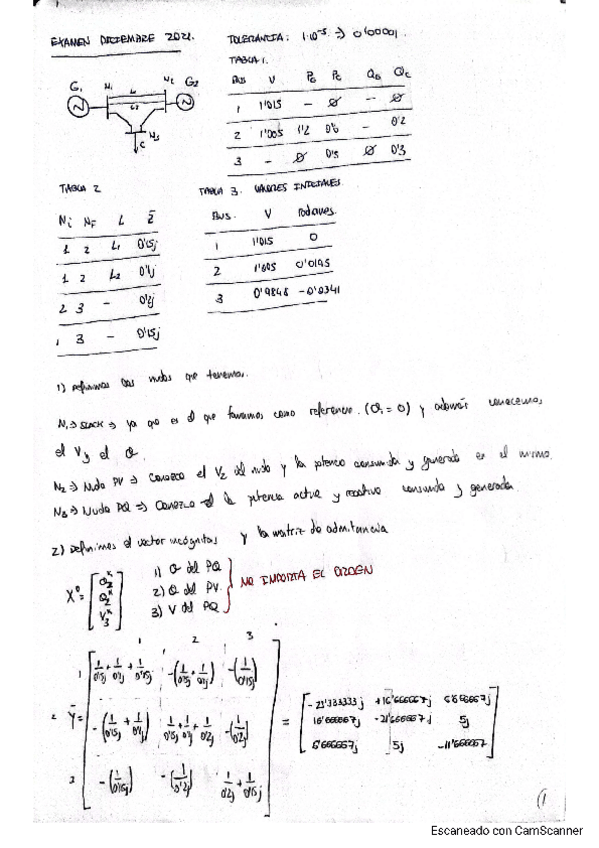 EXAMEN DICIEMBRE 2021.
TOLERANCIA: 1·10⁻⁵ => 0'00001.
TABLA 1.
BUS V PG PC QG QC
1 1'015 - ∅ -- ∅
2 1'005 1'2 0'6 - 0'2
3 - ∅ 0'5 ∅ 0'3
G1 N1 L1 L2 N2 G2
N3
C
TABLA 2
Ni NF L Z̄
1 2 L1 0'15j
1 2 L2 0'1j
2 3 - 0'2j
1 3 - 0'15j
TABLA 3. VALORES INICIALES.
Bus. V radianes.
1 1'015 0
2 1'005 0'0195
3 0'9848 -0'0341
1) Definimos los nudos que tenemos.
N1 => SLACK => ya que es el que tomamos como referencia. (θ1 = 0) y además conocemos
el V y el θ.
N2 => Nudo PV => Conozco el V2 del nudo y la potencia consumida y generada en el mismo.
N3 => Nudo PQ => Conozco la potencia activa y reactiva consumida y generada
2) Definimos el vector incógnitas y la matriz de admitancia
X⁰ =
1) θ del PQ
2) θ del PV.
3) V del PQ
NO IMPORTA EL ORDEN
1 2 3
1 1/0'15j + 1/0'1j + 1/0'15j -(1/0'15j + 1/0'1j) -(1/0'15j)
2 Ȳ = -(1/0'15j + 1/0'1j) 1/0'15j + 1/0'1j + 1/0'2j -(1/0'2j)
3 -(1/0'15j) -(1/0'2j) 1/0'2j + 1/0'15j
=
-21'333333j +16'666667j 6'666667j
16'666667j -21'666667j 5j
6'666667j 5j -11'666667
(1
Escaneado con CamScanner